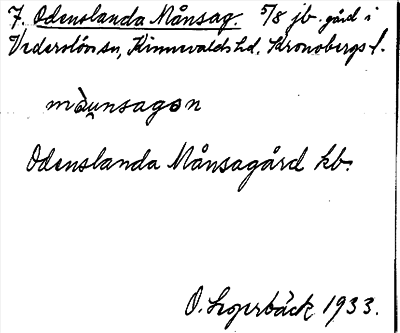 7. Odenslanda Månsag. 5/8 jb. gård i
Vederslövs sn, Kinnevalds hd. Kronobergs l.
màu̯nsagɵn
Odenslanda Månsagård kb.
O. 1933.